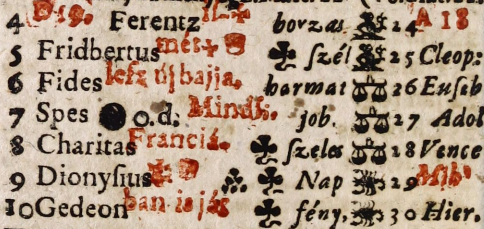 4 Ferentz borzas 24 A 18
5 Fridbertus met szél 25 Cleop:
6 Fides lesz új hajja, harmat 26 Euseb
7 Spes 0. d. Mind job. 27 Adol
8 Charitas Franciá. szeles 28 Vence
9 Dionysius Nap 29 Mih
10 Gedeon ban is jás fény. 30 Hier.